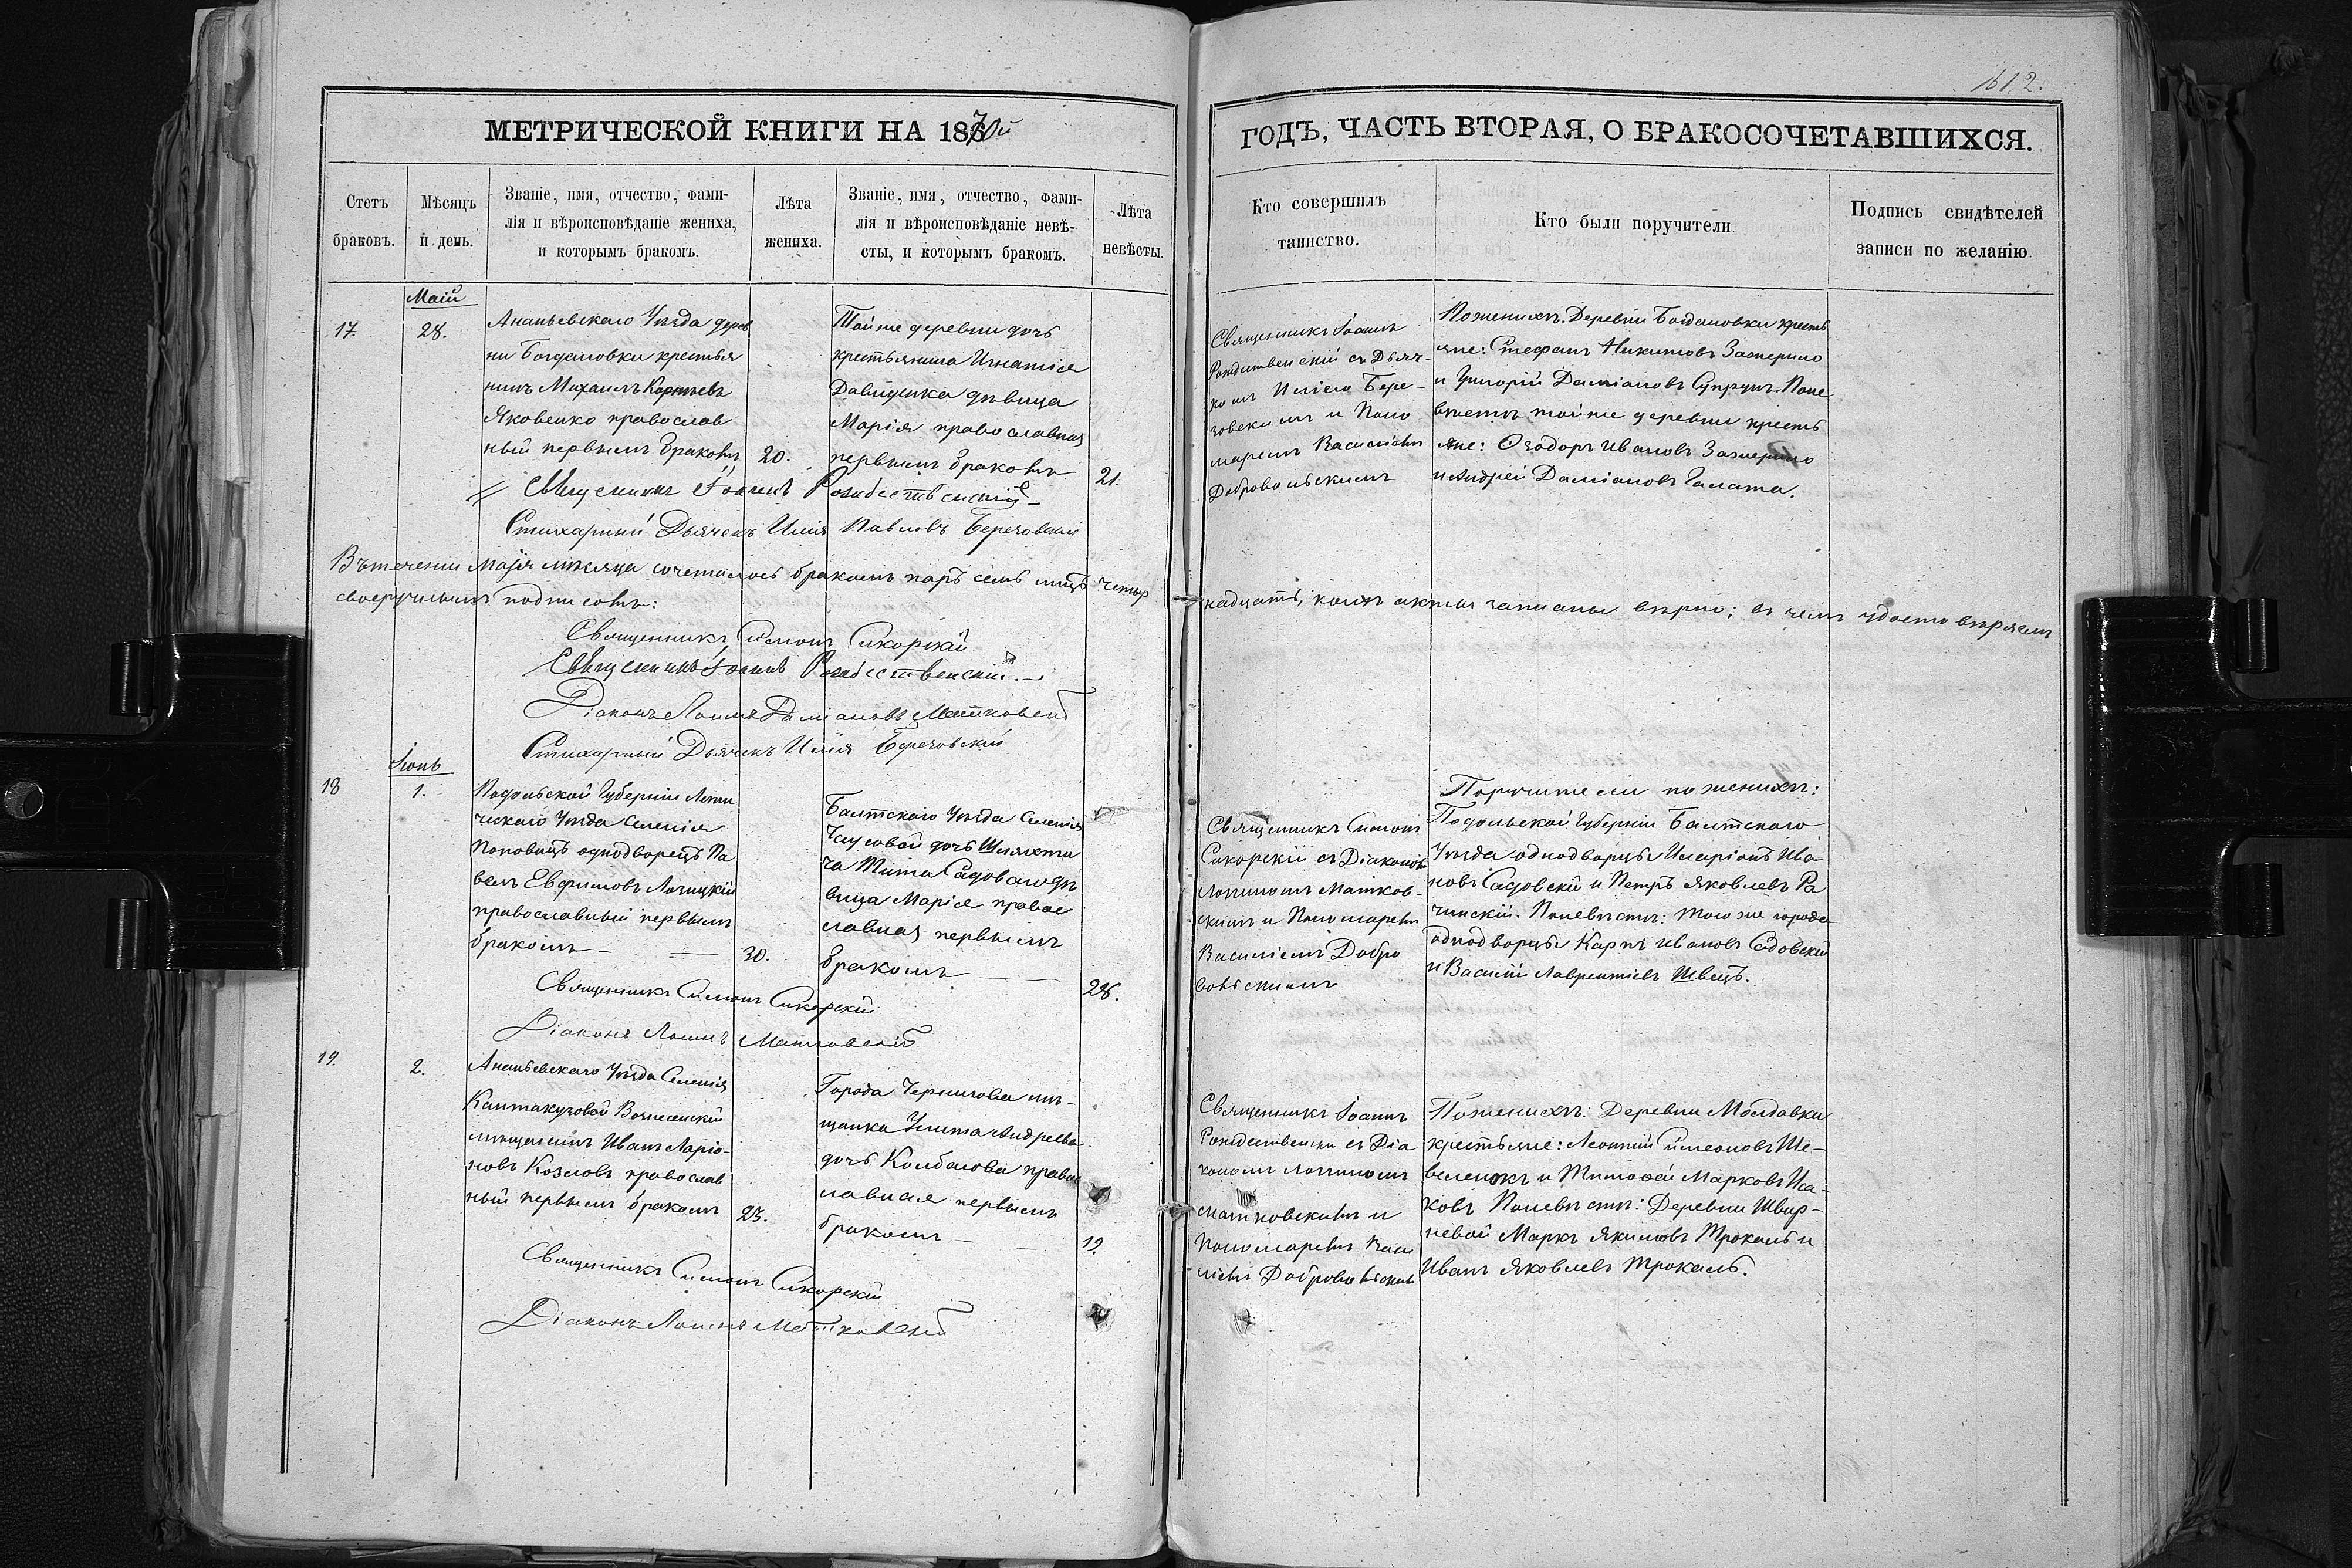 1612.
МЕТРИЧЕСКОЙ КНИГИ НА 1870й
ГОДЪ, ЧАСТЬ ВТОРАЯ, О БРАКОСОЧЕТАВШИХСЯ.
Счетъ
браковъ.
Мѣсяцъ
и день.
Званіе, имя, отчество, фами-
лія и вѣроисповѣданіе жениха,
и которымъ бракомъ.
Лѣта
жениха.
Званіе, имя, отчество, фами-
лія и вѣроисповѣданіе невѣ-
сты, и которымъ бракомъ.
Лѣта
невѣсты.
Кто совершилъ
таинство.
Кто были поручители
Подпись свидѣтелей
записи по желанію.
Маій
17.
28.
Ананьевскаго Уѣзда дерев
ни Богдановки крестья
нинъ Михаилъ
Яковенко православ
ный первымъ бракомъ
20.
Тойже деревни дочь
крестьянина Игнатія
Давиденка дѣвица
Марія православная
первымъ бракомъ
21.
Священникъ Іоаннъ
Рождественскій съ Дьяч-
комъ Иліею Бере-
зовскимъ и Поно
маремъ Василіемъ
Добровольскимъ
Поженихѣ: Деревни Богдановки кресть
яне: Стефанъ Никитовъ
и Григорій Даміановъ Супрунъ. Поне
вѣстѣ тойже деревни кресть
яне: Ѳеодоръ Ивановъ
и Андрей Даміановъ Галата.
Священникъ Іоаннъ Рождественскій
Стихарный Дьячекъ Илія Павловъ Березовскій
Въ теченіи Маія мѣсяца сочеталось бракомъ паръ семь лицъ четыр
надцать, коихъ акты записаны вѣрно; въ чемъ удостовѣряемъ
своеручнымъ подписомъ:
Священникъ Симонъ Сикорскій
Священникъ Іоаннъ Рождественскій
Діаконъ Логинъ Даміановъ Матковскій
Стихарный Дьячекъ Илія Березовскій
Іюнь
18
1.
Подольской Губерніи Лети
чскаго Уѣзда Селенія
Поповецъ однодворецъ Па
велъ Евфимовъ Лозицкій
православный первымъ
бракомъ
30.
Балтскаго Уѣзда Селенія
дочь Шляхти
ча Тита Садоваго дѣ
вица Марія правос
лавная первымъ
бракомъ
28.
Священникъ Симонъ
Сикорскій съ Діакономъ
Логиномъ Матков-
скимъ и Пономаремъ
Василіемъ Добро
вольскимъ
Поручители по женихѣ:
Подольской Губерніи Балтскаго
Уѣзда однодворцы Иларіонъ Ива-
новъ Садовскій и Петръ Яковлевъ Ра
чинскій. Поневѣстѣ: того же города
однодворцы Карпъ Ивановъ Садовскій
и Василій Лаврентіевъ Швецъ.
Священникъ Симонъ Сикорскій
Діаконъ Логинъ Матковскій
19.
2.
Ананьевскаго Уѣзда Селенія
Кантакузовой Вознесенскій
мѣщанинъ Иванъ Ларіо-
новъ Козловъ православ
ный первымъ бракомъ
23.
Города Чернигова мѣ-
щанка Улита Андреева
дочь Колбасова правос
лавная первымъ
бракомъ
19.
Священникъ Іоаннъ
Рождественскій съ Діа
кономъ Логиномъ
Матковскимъ и
Пономаремъ Васи
ліемъ Добровольскимъ
Поженихѣ: Деревни Молдавки
крестьяне: Леонтій Симеоновъ Ше-
веленокъ и Тимофей Марковъ Иса-
ковъ Поневѣстѣ: Деревни Швыр-
невой Маркъ Якимовъ Трокаль и
Иванъ Яковлевъ Трокаль.
Священникъ Симонъ Сикорскій
Діаконъ Логинъ Матковскій